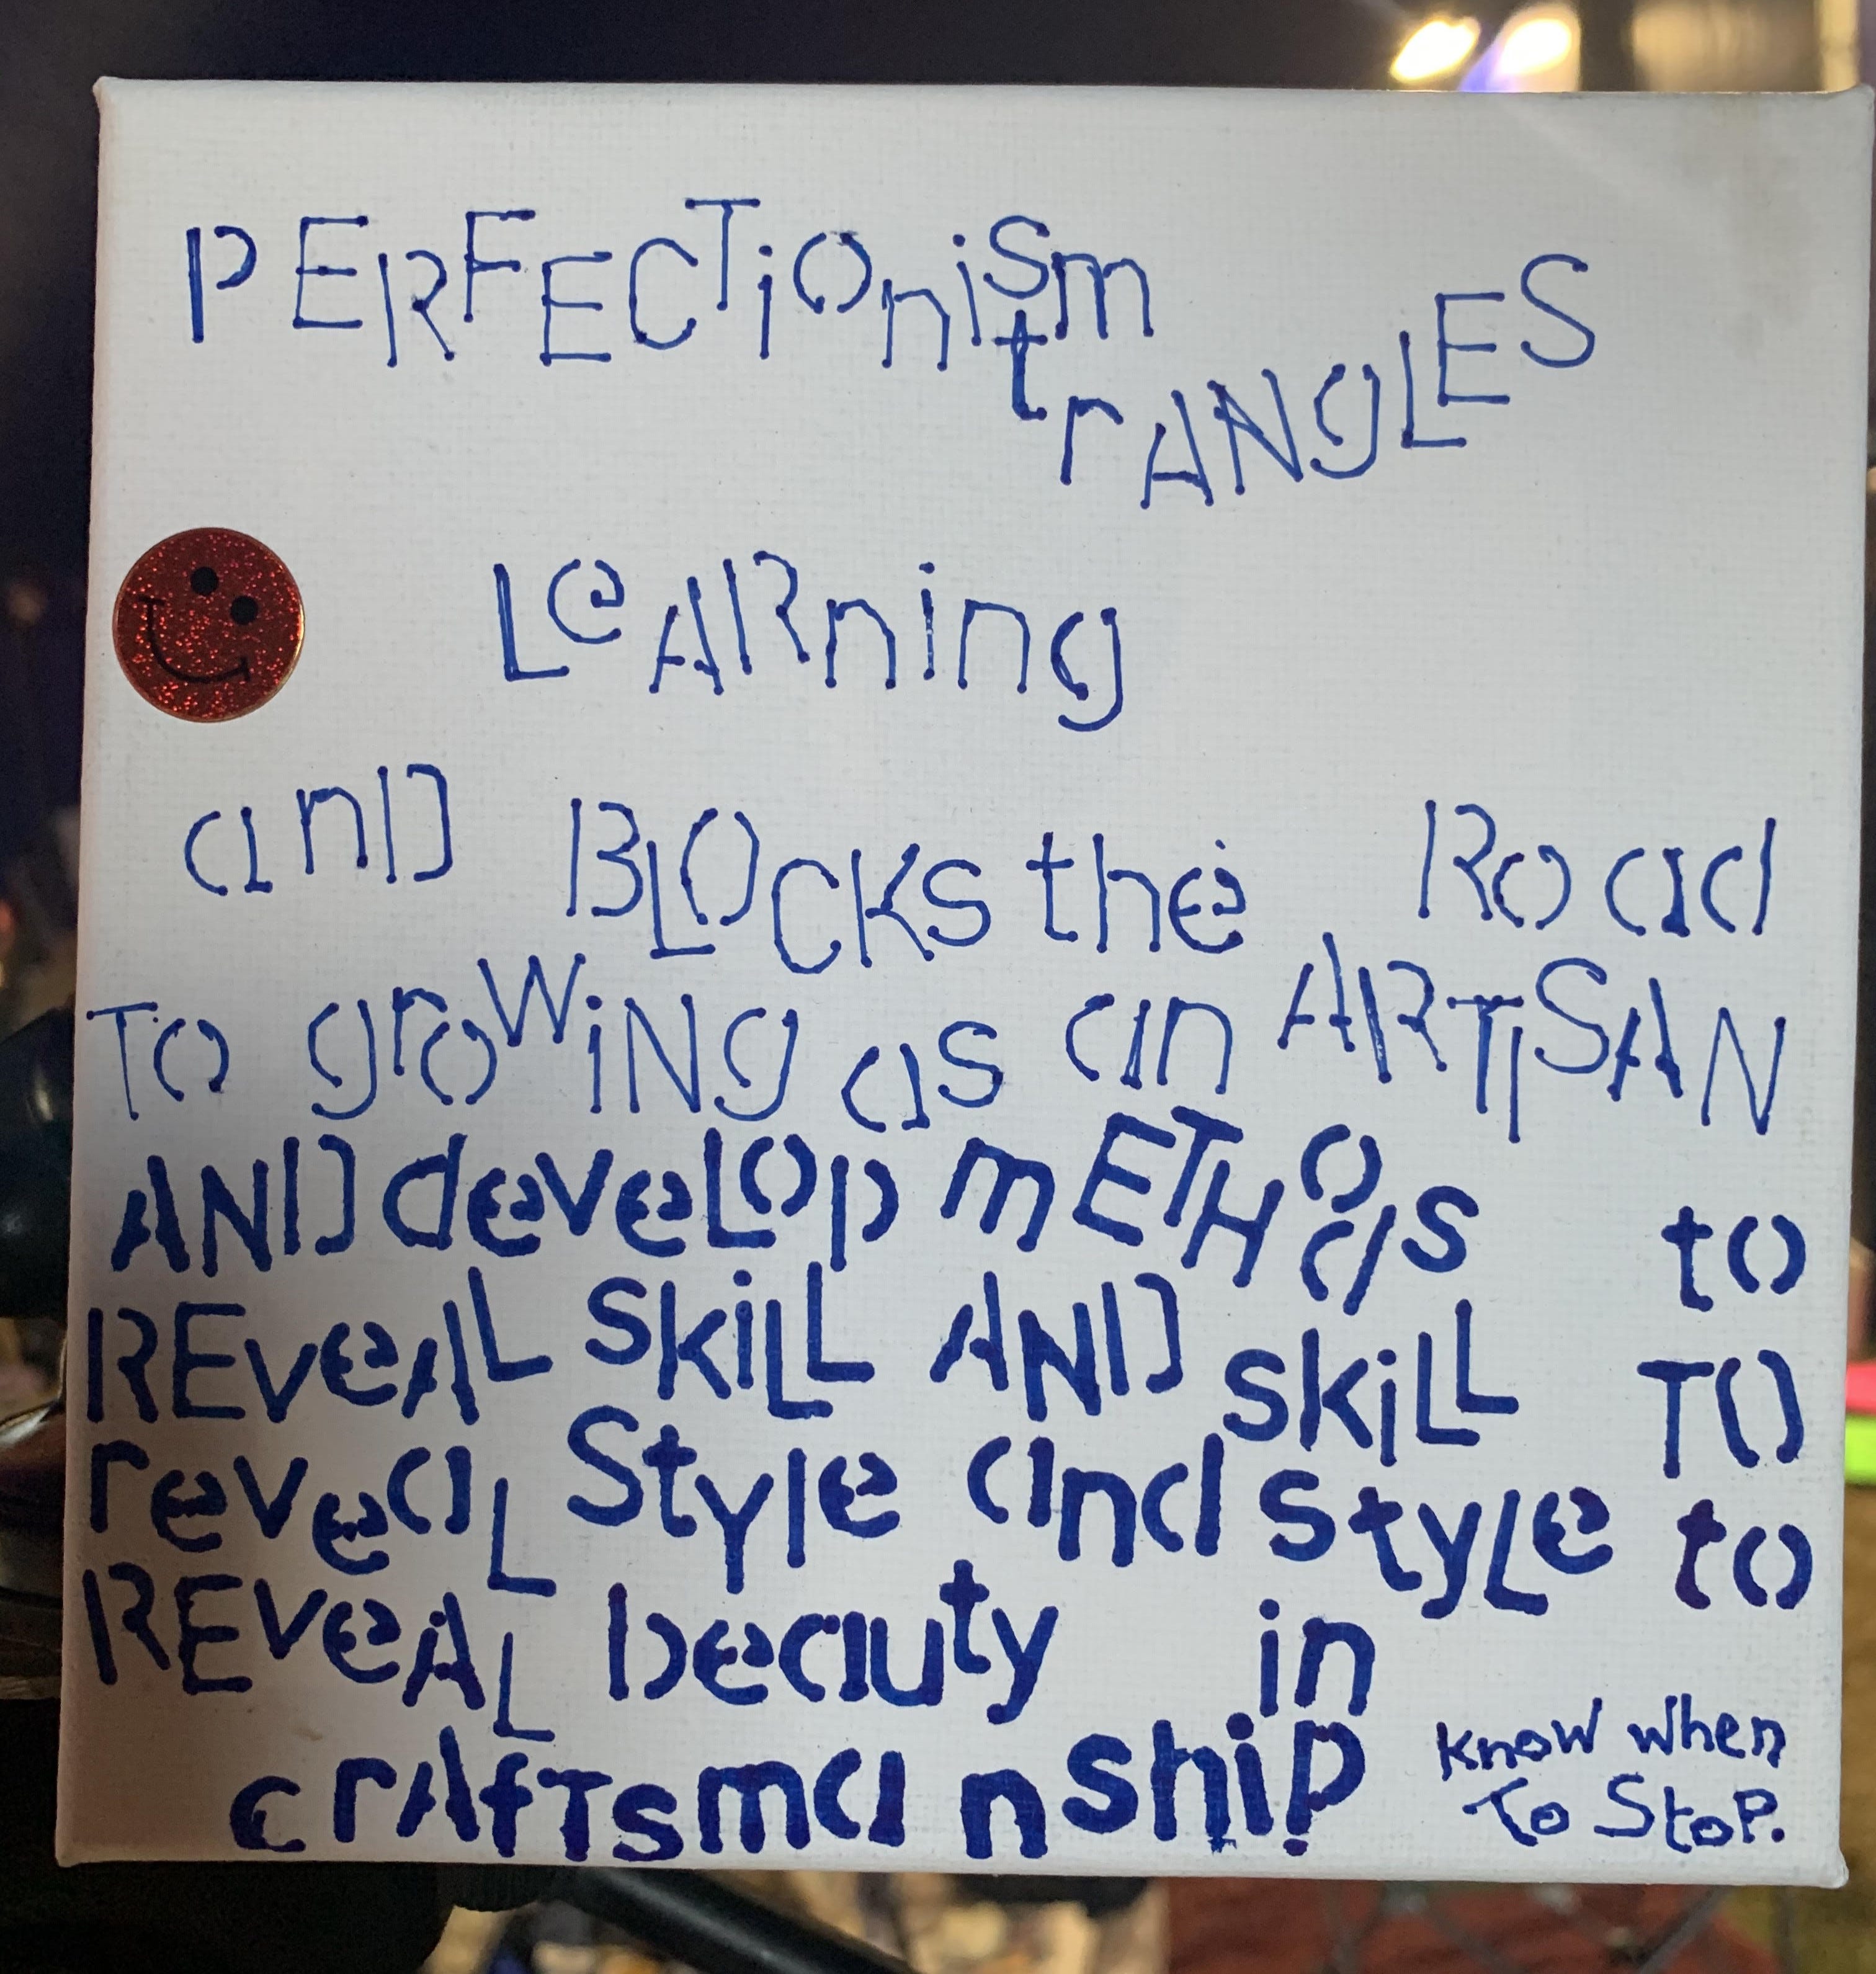 PERFECTioniSm
trANgLES
LeARning
anD BLOCKs the Road
To groWiNg as an ARTiSAN
AND deveLop mETHOds to
REveAL SkiLL AND skiLL TO
reveaL Style and styLe to
REveAL beauty in
crAfTsmanshiP
Know when
To StoP.